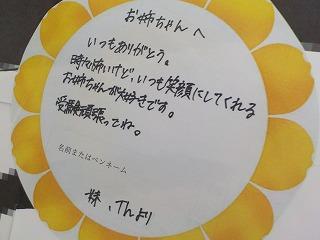 お姉ちゃんへ
いつもありがとう。
時々怖いけど、いつも笑顔にしてくれる
お姉ちゃんが大好きです。
受験頑張ってね。
名前またはペンネーム
妹、Thより